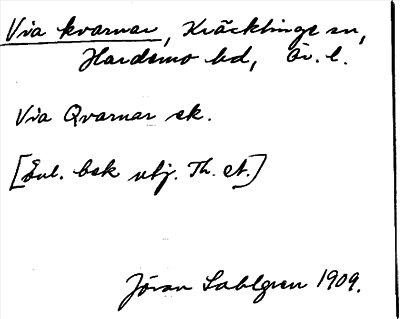 Via kvarnar, Kräcklinge sn,
Hardemo hd, Ör. l.
Via Qvarnar sk.
[Enl. bek utj. Th. et.]
Jöran Sahlgren 1909.